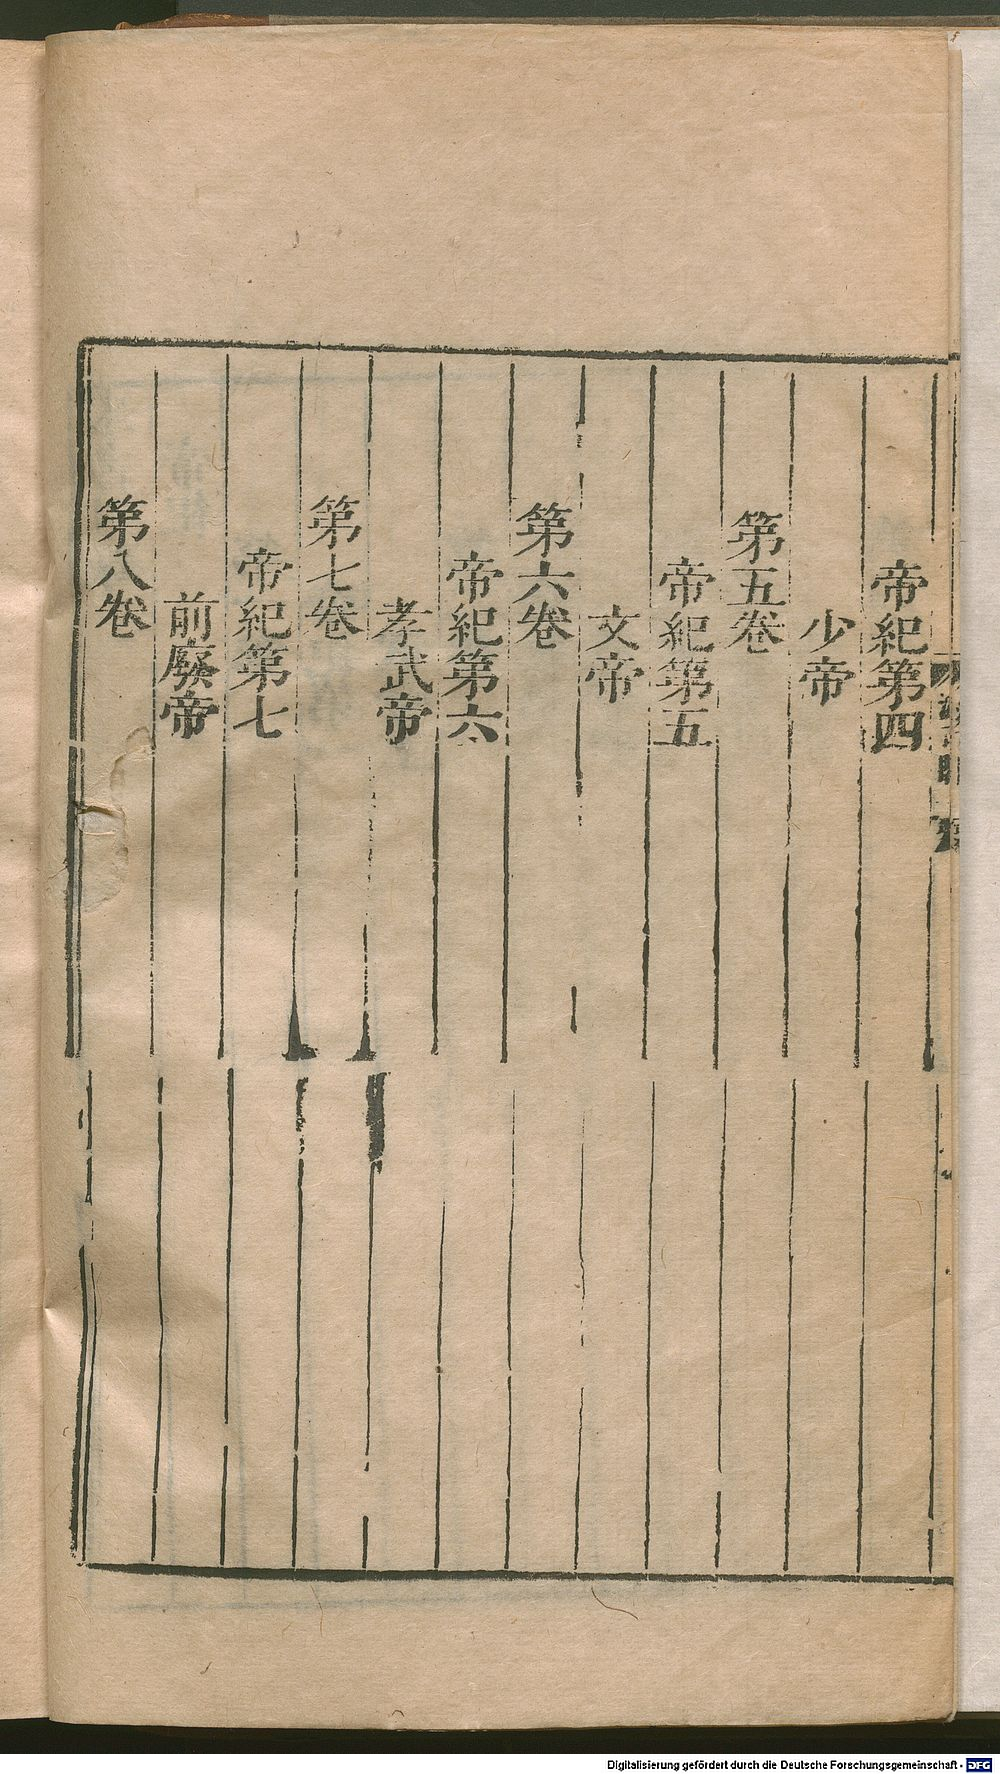 帝紀第四
少帝
第五卷
帝紀第五
文帝
第六卷
帝紀第六
孝武帝
第七卷
帝紀第七
前廢帝
第八卷
Digitalisierung gefördert durch die Deutsche Forschungsgemeinschaft - DFG